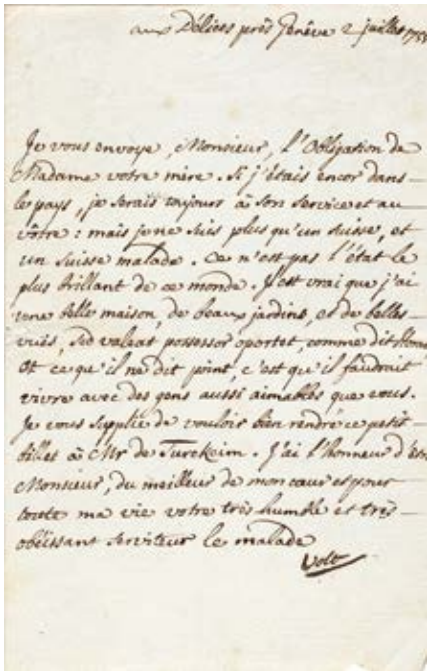 aux Délices près Genêve 2 juillet 1755
Je vous envoye, Monsieur, l'Obligation de
Madame votre mère. Si j'étais encor dans
le pays, je serais toujours à son service et au
vôtre : mais je ne suis plus qu'un suisse, et
un suisse malade. Ce n'est pas l'état le
plus brillant de ce monde. Il est vrai que j'ai
une belle maison, de beaux jardins, et de belles
vuës, sed valeat possessor oportet, comme dit
Et ce qu'il ne dit point, c'est qu'il faudrait
vivre avec des gens aussi aimables que vous.
Je vous supplie de vouloir bien rendre ce petit
billet à Mr de Turckeim. J'ai l'honneur d'être
Monsieur, du meilleur de mon cœur et pour
toute ma vie votre très humble et très
obéissant serviteur le malade
Volt